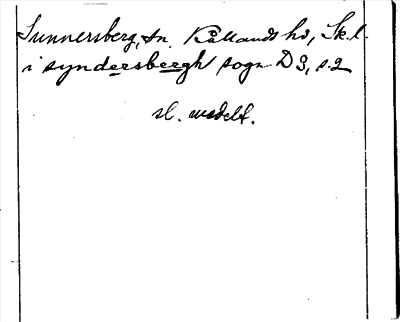 Sunnersberg, sn. Kållands hd, Sk. l.
i syndersbergh sogn D 3, s. 2
sl. medelt.